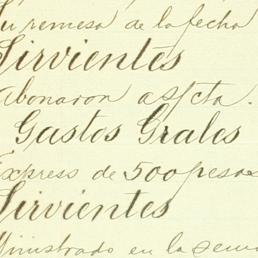 Su remesa de la fecha
Sirvientes
Abonaron a s/cta.
Gastos Grales
Express de 500 pesos
Sirvientes
Ministrado en la sema